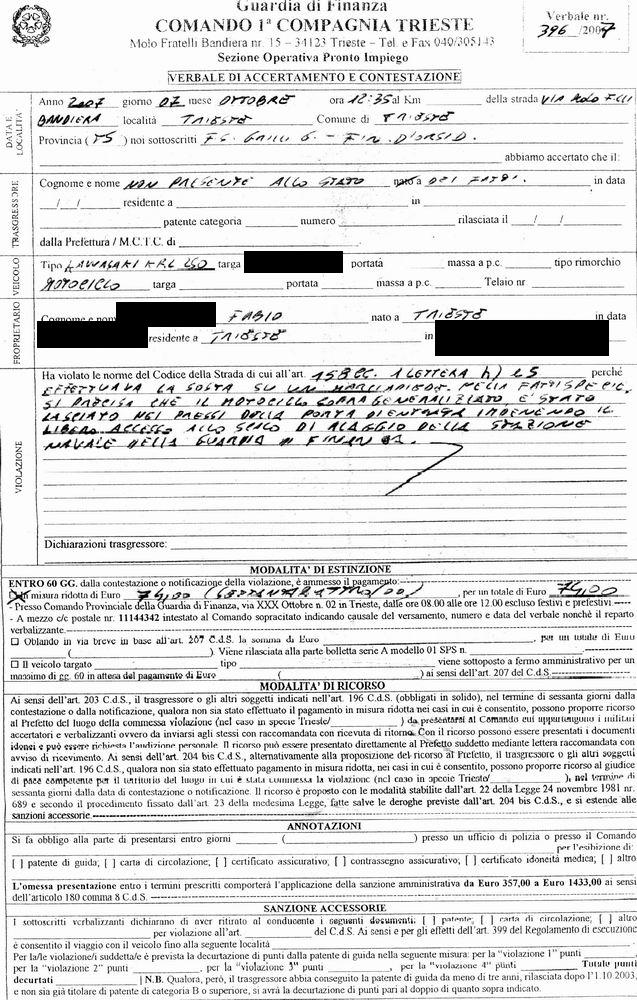 Guardia di Finanza
COMANDO 1ª COMPAGNIA TRIESTE
Molo Fratelli Bandiera nr. 15 – 34123 Trieste – Tel. e Fax 040/305143
Sezione Operativa Pronto Impiego
Verbale nr.
396 /2007
VERBALE DI ACCERTAMENTO E CONTESTAZIONE
DATA E LOCALITA'
Anno 2007 giorno 07 mese OTTOBRE ora 12:35 al Km della strada VIA MOLO F.LLI
BANDIERA località TRIESTE Comune di TRIESTE
Provincia ( TS ) noi sottoscritti
abbiamo accertato che il:
TRASGRESSORE
Cognome e nome NON PRESENTE ALLO STATO nato a DEI FATTI. in data
__/__/__ residente a in
patente categoria numero rilasciata il __/__/__
dalla Prefettura / M.C.T.C. di
VEICOLO
Tipo KAWASAKI 250 targa portata massa a p.c. tipo rimorchio
MOTOCICLO targa portata massa a p.c. Telaio nr.
PROPRIETARIO
Cognome e nome FABIO nato a TRIESTE in data
residente a TRIESTE in
VIOLAZIONE
Ha violato le norme del Codice della Strada di cui all'art. 158 CC. 1 LETTERA h) E 5 perché
EFFETTUAVA LA SOSTA SU UN MARCIAPIEDE. NELLA FATTISPECIE,
SI PRECISA CHE IL MOTOCICLO SOPRA GENERALIZZATO, E' STATO
LASCIATO NEI PRESSI DELLA PORTA DI ENTRATA IMPEDENDO IL
LIBERO ACCESSO ALLO SCALO DI ALAGGIO DELLA STAZIONE
NAVALE DELLA GUARDIA DI FINANZA.
Dichiarazioni trasgressore:
MODALITA' DI ESTINZIONE
ENTRO 60 GG. dalla contestazione o notificazione della violazione, è ammesso il pagamento:
in misura ridotta di Euro 74,00 (SETTANTAQUATTRO/00), per un totale di Euro 74,00
- Presso Comando Provinciale della Guardia di Finanza, via XXX Ottobre n. 02 in Trieste, dalle ore 08.00 alle ore 12.00 escluso festivi e prefestivi.-----
- A mezzo c/c postale nr. 11144342 intestato al Comando sopracitato indicando causale del versamento, numero e data del verbale nonchè il reparto
verbalizzante.
□ Obbligo in via breve in base all'art. 207 C.d.S. la somma di Euro per un totale di Euro
( ). Viene rilasciata alla parte bolletta serie A modello 01 SPS n.
□ Il veicolo targato tipo viene sottoposto a fermo amministrativo per un
massimo di gg. 60 in attesa del pagamento di Euro ( ) ai sensi dell'art. 207 del C.d.S.
MODALITA' DI RICORSO
Ai sensi dell'art. 203 C.d.S., il trasgressore o gli altri soggetti indicati nell'art. 196 C.d.S. (obbligati in solido), nel termine di sessanta giorni dalla
contestazione o dalla notificazione, qualora non sia stato effettuato il pagamento in misura ridotta nei casi in cui è consentito, possono proporre ricorso
al Prefetto del luogo della commessa violazione (nel caso in specie Trieste/ ) da presentarsi al Comando cui appartengono i militari
accertatori e verbalizzanti ovvero da inviarsi agli stessi con raccomandata con ricevuta di ritorno. Con il ricorso possono essere presentati i documenti
idonei e può essere richiesta l'audizione personale. Il ricorso può essere presentato direttamente al Prefetto suddetto mediante lettera raccomandata con
avviso di ricevimento. Ai sensi dell'art. 204 bis C.d.S., alternativamente alla proposizione del ricorso al Prefetto, il trasgressore o gli altri soggetti
indicati nell'art. 196 C.d.S., qualora non sia stato effettuato pagamento in misura ridotta, nei casi in cui è consentito, possono proporre ricorso al giudice
di pace competente per il territorio del luogo in cui è stata commessa la violazione (nel caso in specie Trieste/ ), nel termine di
sessanta giorni dalla data di contestazione o notificazione. Il ricorso è proposto con le modalità stabilite dall'art. 22 della Legge 24 novembre 1981 nr.
689 e secondo il procedimento fissato dall'art. 23 della medesima Legge, fatte salve le deroghe previste dall'art. 204 bis C.d.S., e si estende alle
sanzioni accessorie.
ANNOTAZIONI
Si fa obbligo alla parte di presentarsi entro giorni ( ) presso un ufficio di polizia o presso il Comando
per l'esibizione di:
[ ] patente di guida; [ ] carta di circolazione; [ ] certificato assicurativo; [ ] contrassegno assicurativo; [ ] certificato idoneità medica; [ ] altro
L'omessa presentazione entro i termini prescritti comporterà l'applicazione della sanzione amministrativa da Euro 357,00 a Euro 1433,00 ai sensi
dell'articolo 180 comma 8 C.d.S.
SANZIONE ACCESSORIE
I sottoscritti verbalizzanti dichiarano di aver ritirato al conducente i seguenti documenti: [ ] patente; [ ] carta di circolazione; [ ] altro
per violazione all'art. del C.d.S. Ai sensi e per gli effetti dell'art. 399 del Regolamento di esecuzione
è consentito il viaggio con il veicolo fino alla seguente località
Per la/le violazione/i suddetta/e è prevista la decurtazione di punti dalla patente di guida nella seguente misura: per la "violazione 1" punti
per la "violazione 2" punti , per la "violazione 3" punti , per la "violazione 4" punti Totale punti
decurtati | N.B. Qualora, però, il trasgressore abbia conseguito la patente di guida da meno di tre anni, rilasciata dopo l'1.10.2003,
e non sia già titolare di patente di categoria B o superiore, si avrà la decurtazione di punti pari al doppio di quanto sopra indicato.